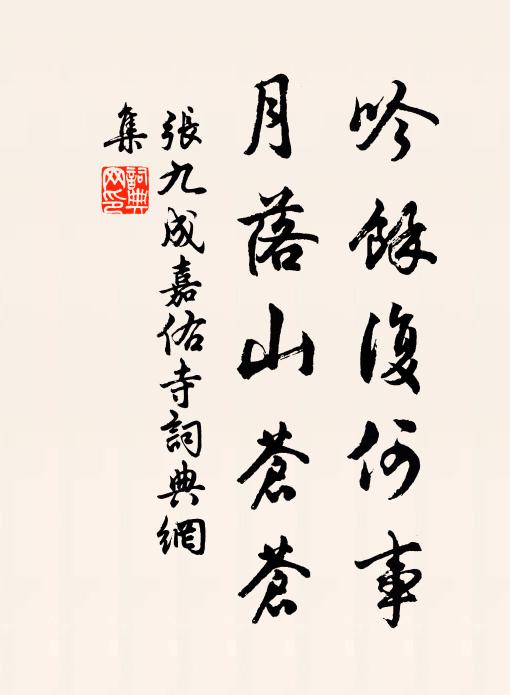 吟餘復何事
月落山蒼蒼
張九成嘉佑寺詞典網
集
詞典
网印